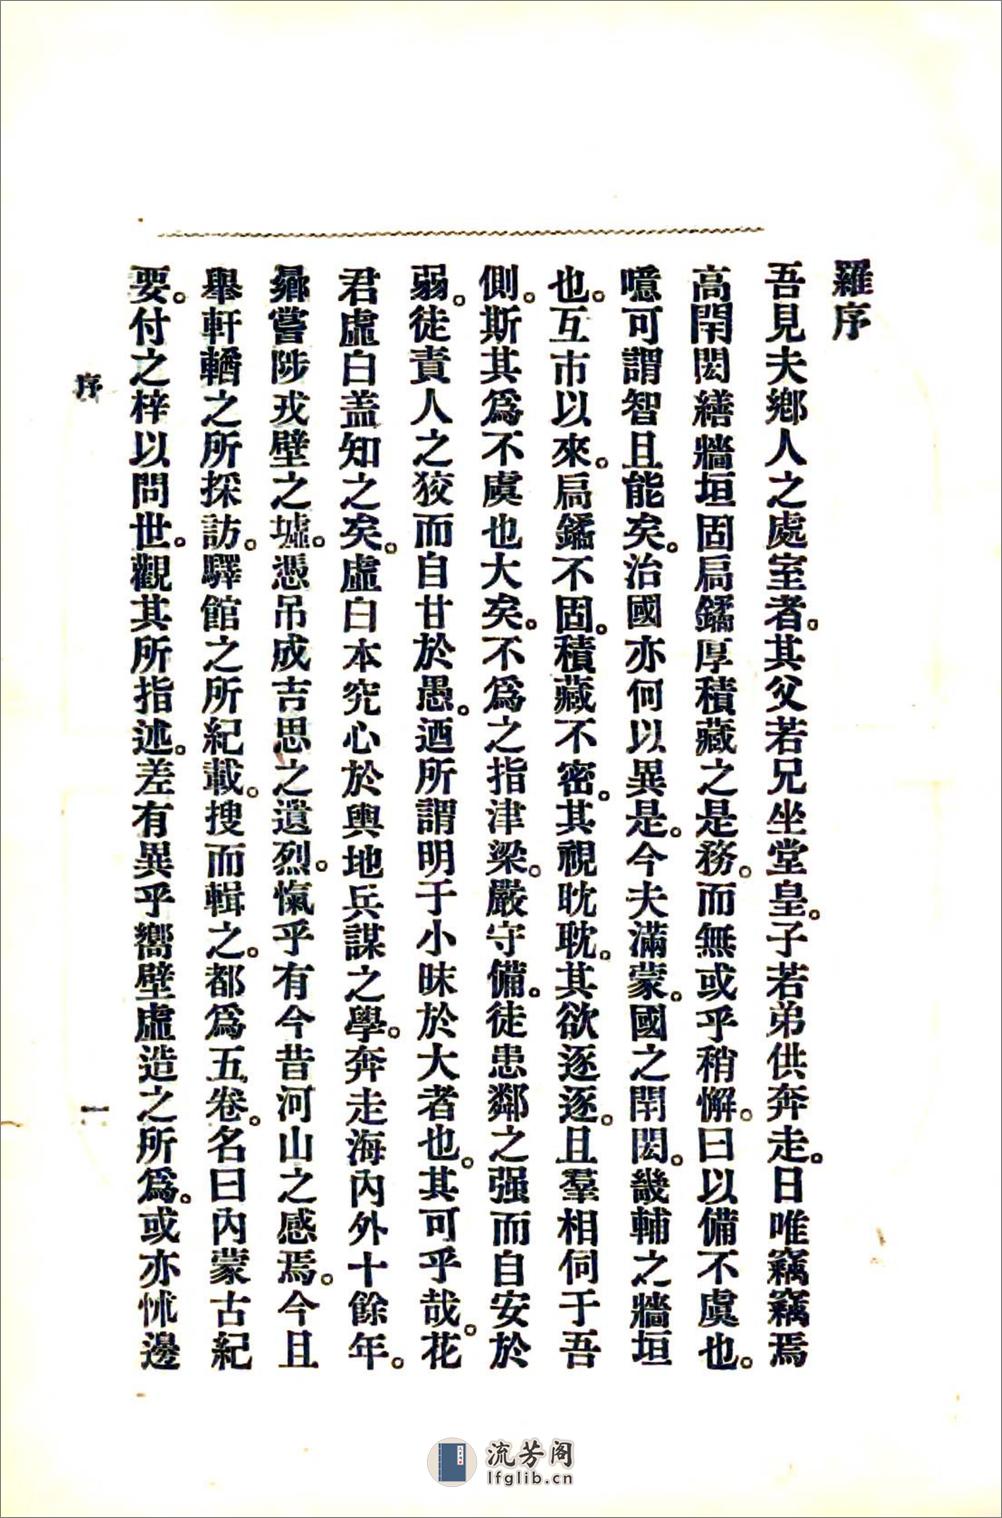 羅序
吾見夫鄉人之處室者。其父若兄坐堂皇。子若弟供奔走。日唯竊竊焉
高閈閎繕牆垣固扃鐍厚積藏之是務。而無或乎稍懈。曰以備不虞也。
噫可謂智且能矣。治國亦何以異是。今夫滿蒙。國之閈閎。畿輔之牆垣
也。互市以來。扃鐍不固。積藏不密。其視眈眈。其欲逐逐。且羣相伺于吾
側。斯其爲不虞也大矣。不爲之指津梁。嚴守備。徒患鄰之强而自安於
弱。徒責人之狡而自甘於愚。迺所謂明于小昧於大者也。其可乎哉。花
君虛白盖知之矣。虛白本究心於輿地兵謀之學。奔走海內外十餘年。
曏嘗陟戎壁之墟。憑吊成吉思之遺烈。愾乎有今昔河山之感焉。今且
舉軒輶之所採訪。驛館之所紀載。搜而輯之。都爲五卷。名曰內蒙古紀
要。付之梓以問世。觀其所指述。差有異乎嚮壁虛造之所爲。或亦怵邊
序
一
流芳阁
lfglib.cn